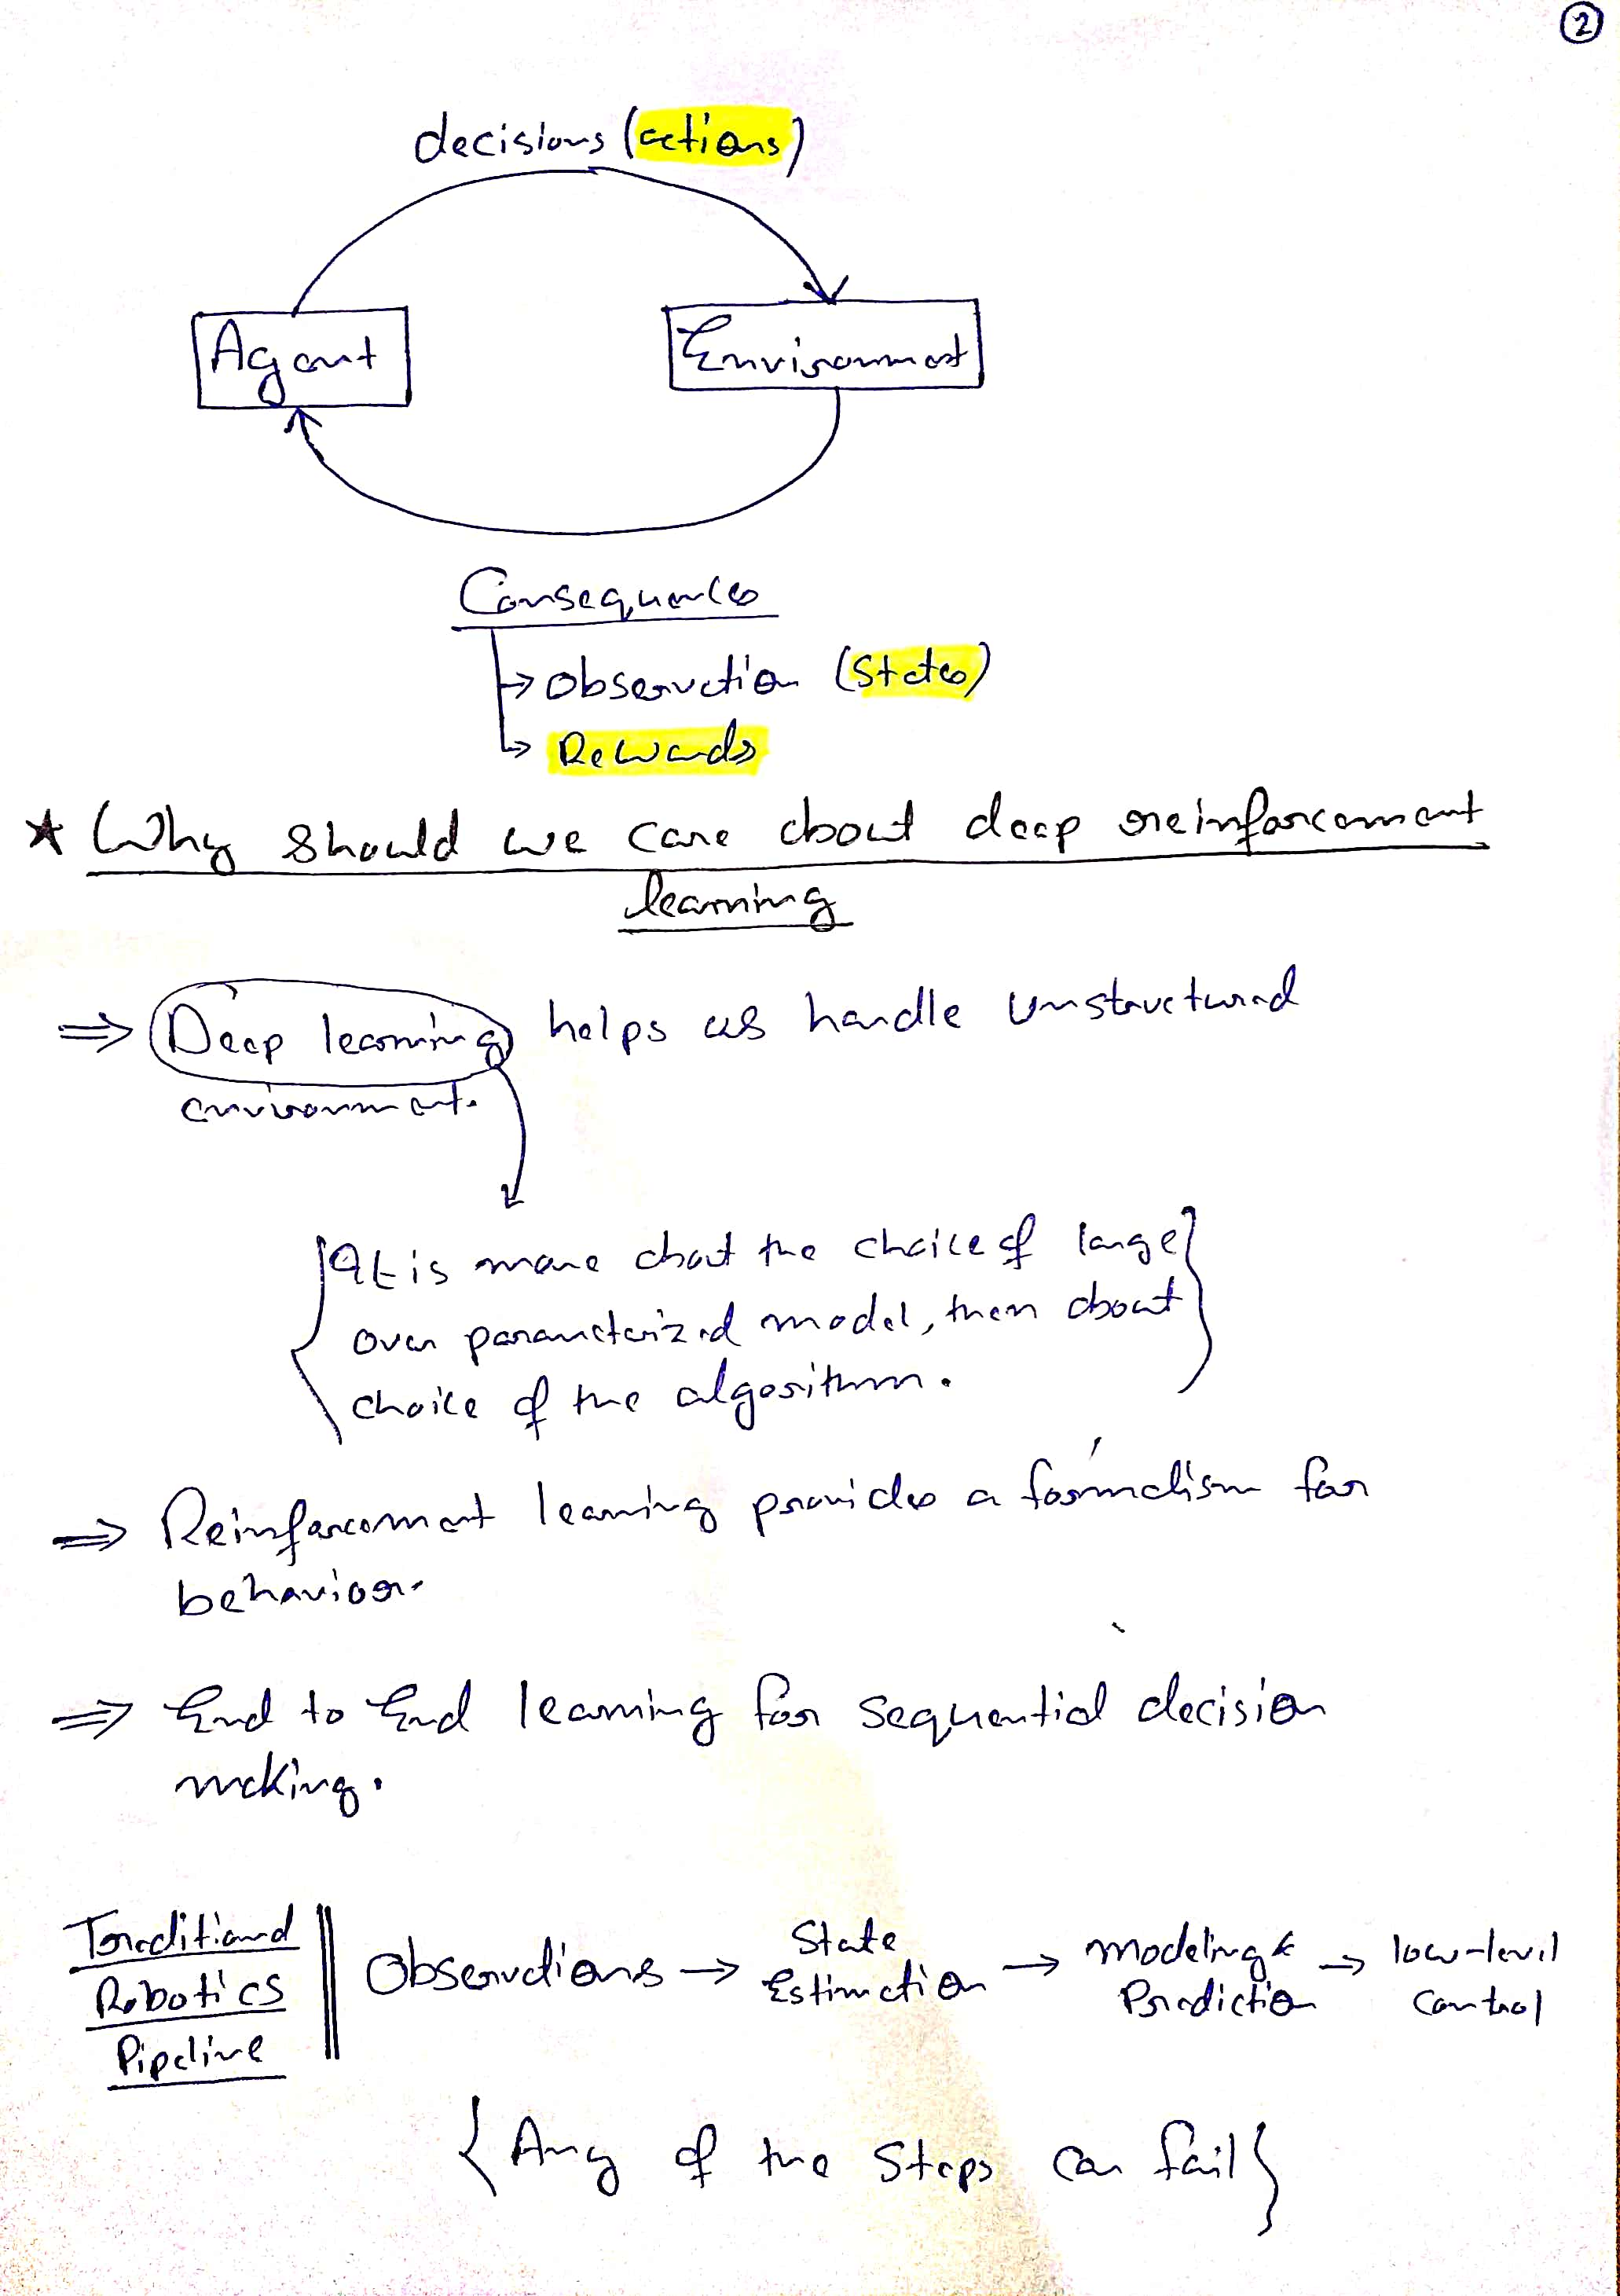 2
decisions (actions)
Agent
Environment
Consequences
→ Observation (States)
→ Rewards
* Why should we care about deep reinforcement
learning
⇒ Deep learning helps us handle unstructured
environment.
{It is more about the choice of large}
over parameterized model, then about
choice of the algorithm.
⇒ Reinforcement learning provides a formalism for
behavior.
⇒ End to End learning for sequential decision
making.
Traditional
Robotics
Pipeline
Observations → State Estimation → Modeling & Prediction → low-level control
{Any of the Steps can fail}